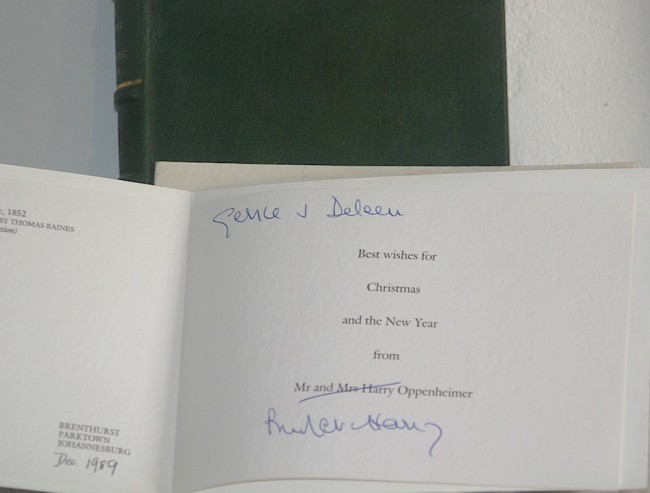 c, 1852
BY THOMAS BAINES
BRENTHURST
PARKTOWN
JOHANNESBURG
Dec. 1989
Best wishes for
Christmas
and the New Year
from
Mr and Mrs Harry Oppenheimer